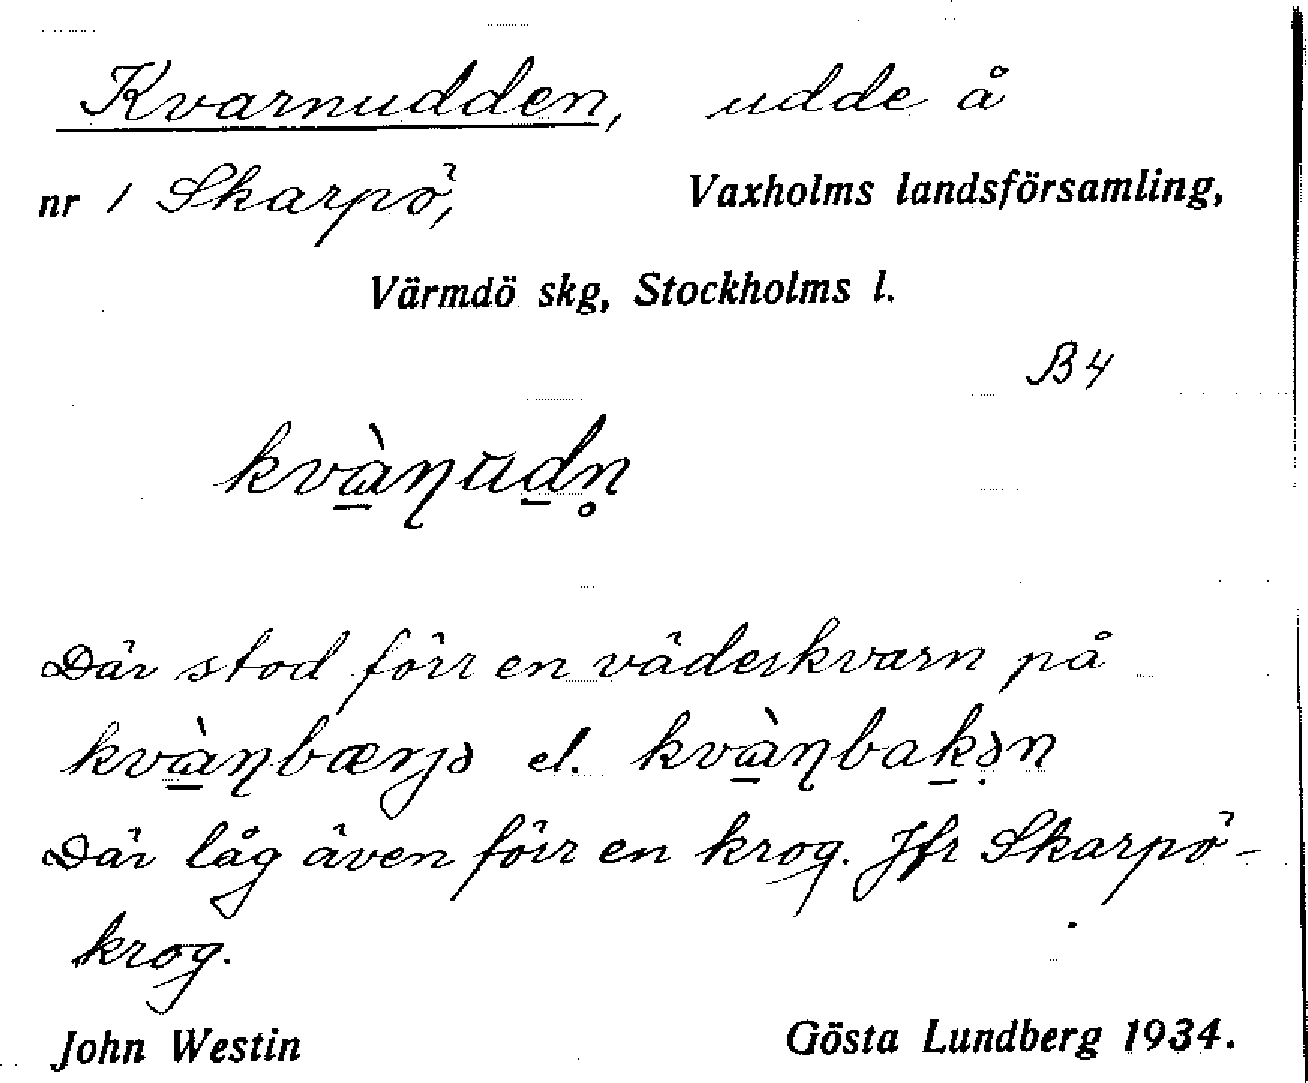 Kvarnudden, udde å
nr 1 Skarpö, Vaxholms landsförsamling,
Värmdö skg, Stockholms l.
B4
kvà̱ɳuḏn̥
Där stod förr en väderkvarn på
kvà̱ɳbærjə el. kvà̱ɳbaḵə̣n
Där låg även förr en krog. Jfr Skarpö-
krog.
John Westin Gösta Lundberg 1934.